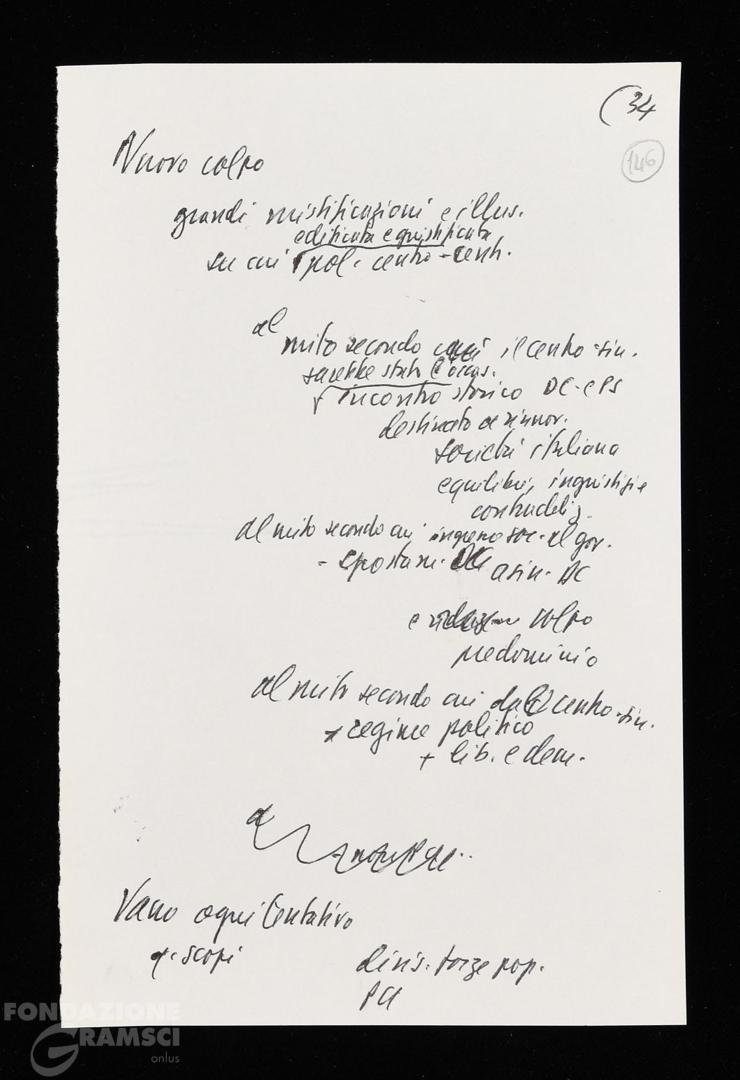 (34
146
Nuovo colpo
grandi mistificazioni e illus.
edificata e giustificata
su cui pol. centro-sin.
al
mito secondo cui il centro-sin.
sarebbe stato l'occas.
incontro storico DC e PS
destinato a rinnov.
società italiana
equilibri, ingiustizie
contraddiz.
al mito secondo cui ingresso soc. al gov.
= spostam. a sin. DC
e colpo
predominio
al mito secondo cui dal centro-sin.
regime politico
+ lib. e dem.
a
Vano ogni tentativo
a. scopi divis. forze pop.
PCI
FONDAZIONE
GRAMSCI
onlus